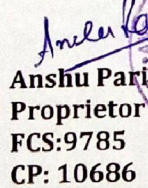 Anshu Pari
Proprietor
FCS:9785
CP: 10686